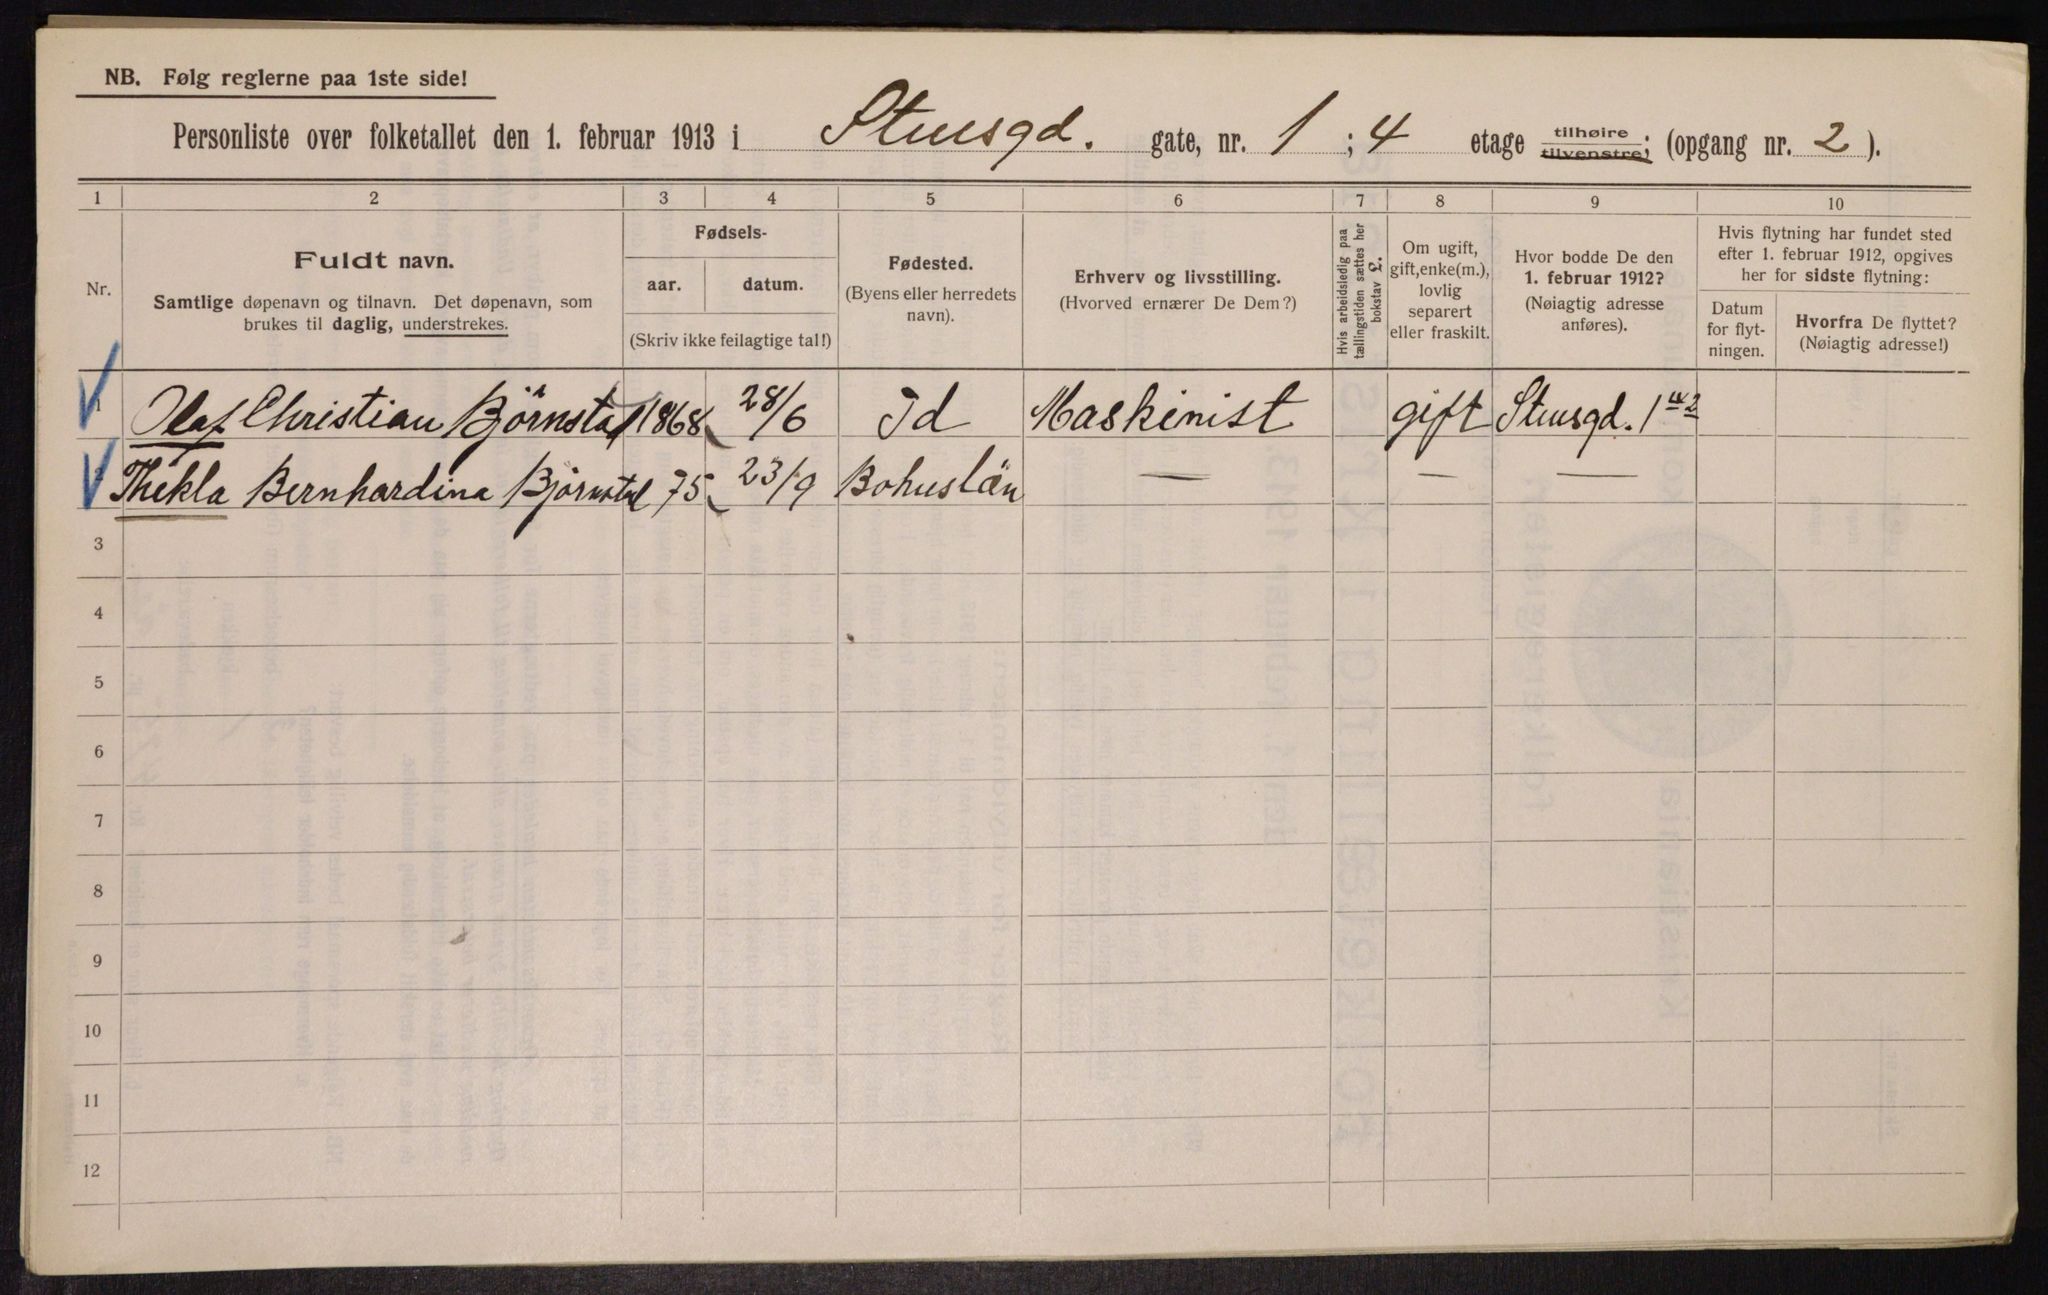 NB. Følg reglerne paa 1ste side!
Personliste over folketallet den 1. februar 1913 i Stuesgd. gate, nr. 1; 4 etage tilhøire tilvenstre; (opgang nr. 2).
1 2 3 4 5 6 7 8 9 10
Nr.
Fuldt navn.
Samtlige døpenavn og tilnavn. Det døpenavn, som
brukes til daglig, understrekes.
Fødsels-
aar. datum.
(Skriv ikke feilagtige tal!)
Fødested.
(Byens eller herredets
navn).
Erhverv og livsstilling.
(Hvorved ernærer De Dem?)
Hvis arbeidsledig paa
tællingstiden sættes her
bokstav L.
Om ugift,
gift, enke(m.),
lovlig
separert
eller fraskilt.
Hvor bodde De den
1. februar 1912?
(Nøiagtig adresse
anføres).
Hvis flytning har fundet sted
efter 1. februar 1912, opgives
her for sidste flytning:
Datum
for flyt-
ningen.
Hvorfra De flyttet?
(Nøiagtig adresse!)
1 Olaf Christian Björnstad 1868 28/6 Id Maskinist gift Stuesgd. 1
Thekla Bernhardina Björnstad 75 23/9 Bohuslän — — —
3
4
5
6
7
8
9
10
11
12